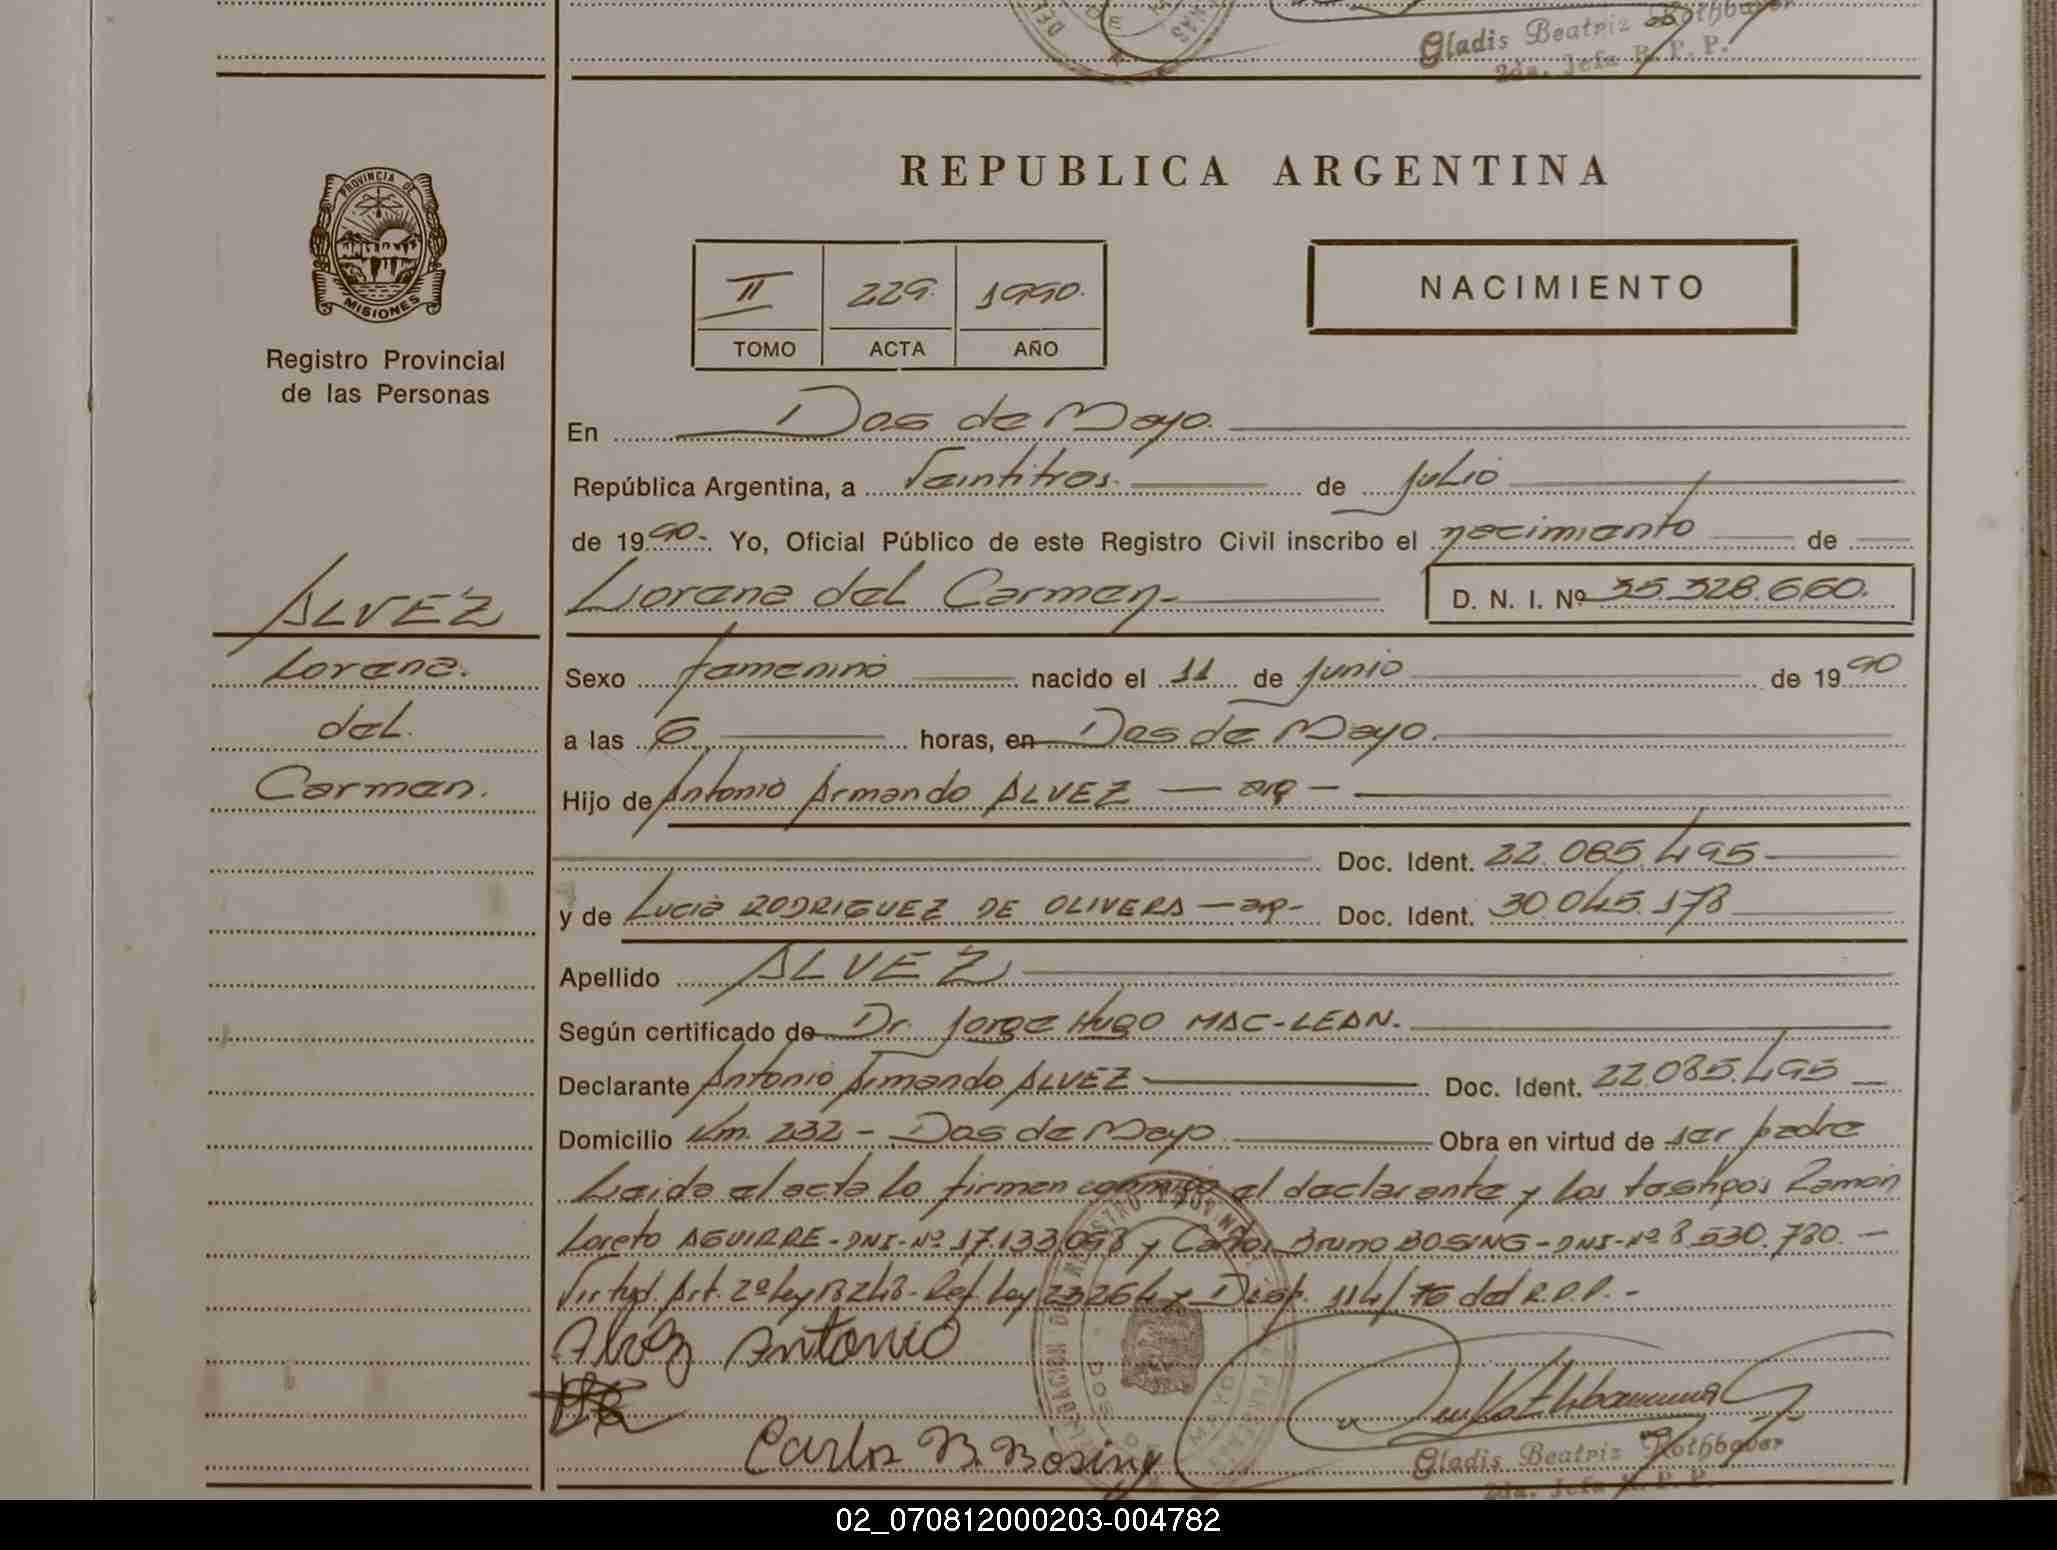 Gladis Beatriz Rothbauer
2da. Jefa R. P. P.
PROVINCIA DE
MISIONES
Registro Provincial
de las Personas
REPUBLICA ARGENTINA
II 229. 1990.
TOMO ACTA AÑO
NACIMIENTO
En Dos de Mayo.
República Argentina, a Veintitres. de Julio
de 1990.- Yo, Oficial Público de este Registro Civil inscribo el nacimiento de
Lorena del Carmen- D. N. I. Nº 35.328.660.
ALVEZ
Lorena.
del.
Carmen.
Sexo femenino nacido el 11 de Junio de 1990
a las 6 horas, en Dos de Mayo.
Hijo de Antonio Armando ALVEZ — arg —
Doc. Ident. 22.085.495
y de Lucia RODRIGUEZ DE OLIVERA — arg- Doc. Ident. 30.045.178
Apellido ALVEZ
Según certificado de Dr. Jorge Hugo MAC-LEAN.
Declarante Antonio Armando ALVEZ Doc. Ident. 22.085.495
Domicilio Km. 232 - Dos de Mayo Obra en virtud de ser padre
Leida el acta lo firman conmigo el declarante y los testigos Ramón
Loreto AGUIRRE-DNI-Nº 17.133.098 y Carlos Bruno BOSING-DNI-Nº 8.530.780.-
Virtud. Art. 2º Ley 18248- Ref. Ley 23264 y Disp. 114/76 del R.P.P.-
Alvez Antonio
Carlos B. Bosing
Gladis Beatriz Rothbauer
2da. Jefa R. P. P.
02_070812000203-004782